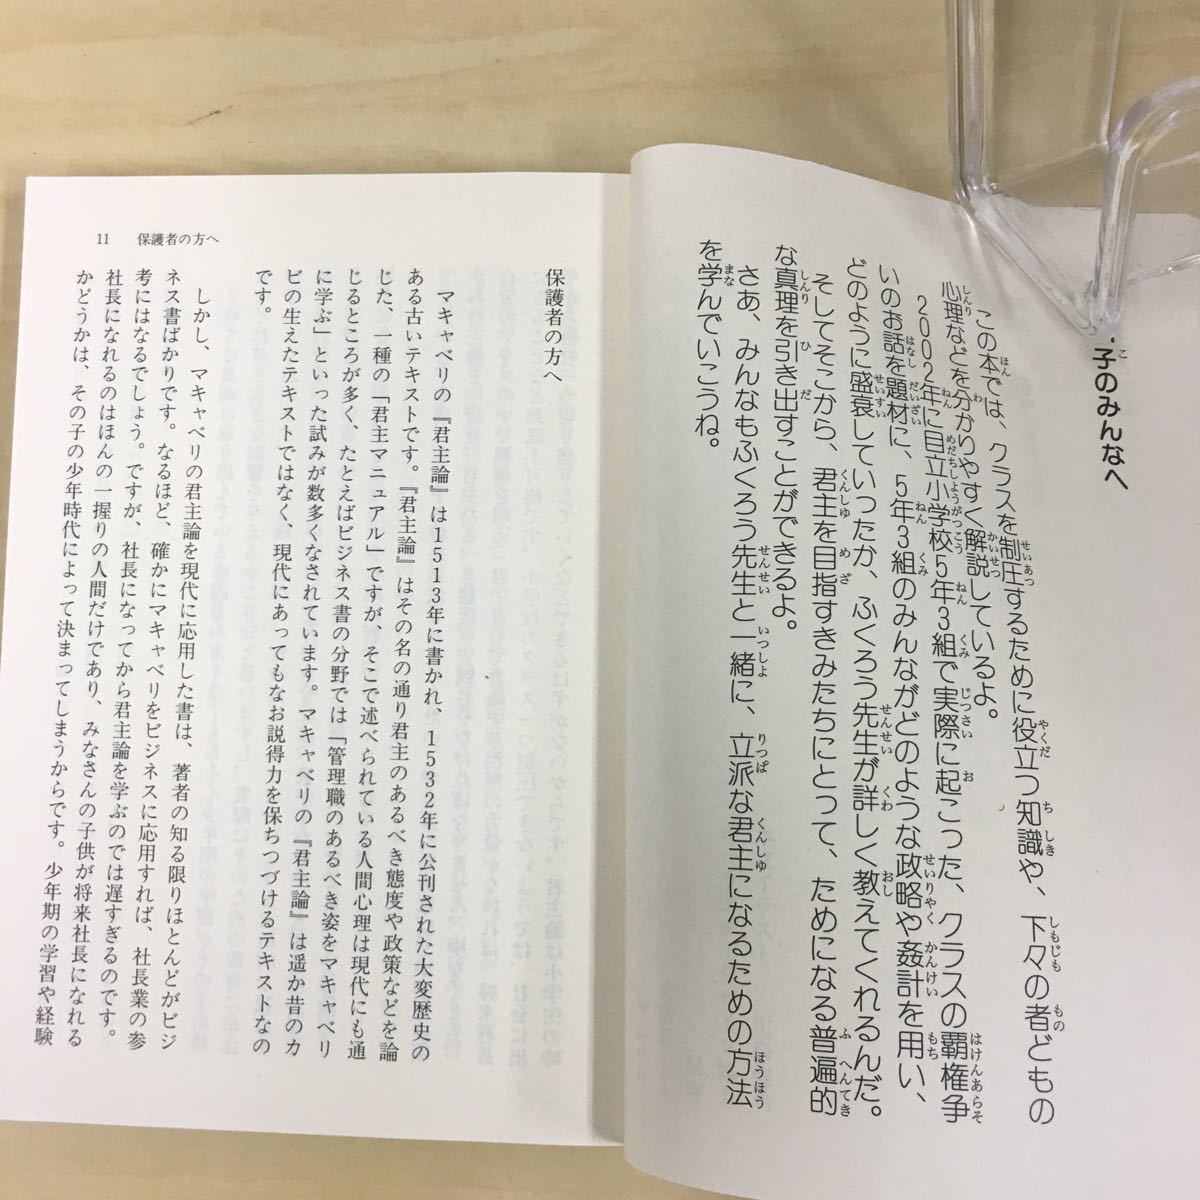 子のみんなへ
この本では、クラスを制圧するために役立つ知識や、下々の者どもの
心理などを分かりやすく解説しているよ。
2002年に目立小学校5年3組で実際に起こった、クラスの覇権争
いのお話を題材に、5年3組のみんながどのような政略や姦計を用い、
どのように盛衰していったか、ふくろう先生が詳しく教えてくれるんだ。
そしてそこから、君主を目指すきみたちにとって、ためになる普遍的
な真理を引き出すことができるよ。
さあ、みんなもふくろう先生と一緒に、立派な君主になるための方法
を学んでいこうね。
11 保護者の方へ
保護者の方へ
マキャベリの『君主論』は1513年に書かれ、1532年に公刊された大変歴史の
ある古いテキストです。『君主論』はその名の通り君主のあるべき態度や政策などを論
じた、一種の「君主マニュアル」ですが、そこで述べられている人間心理は現代にも通
じるところが多く、たとえばビジネス書の分野では「管理職のあるべき姿をマキャベリ
に学ぶ」といった試みが数多くなされています。マキャベリの『君主論』は遥か昔のカ
ビの生えたテキストではなく、現代にあってもなお説得力を保ちつづけるテキストなの
です。
しかし、マキャベリの君主論を現代に応用した書は、著者の知る限りほとんどがビジ
ネス書ばかりです。なるほど、確かにマキャベリをビジネスに応用すれば、社長業の参
考にはなるでしょう。ですが、社長になってから君主論を学ぶのでは遅すぎるのです。
社長になれるのはほんの一握りの人間だけであり、みなさんの子供が将来社長になれる
かどうかは、その子の少年時代によって決まってしまうからです。少年期の学習や経験